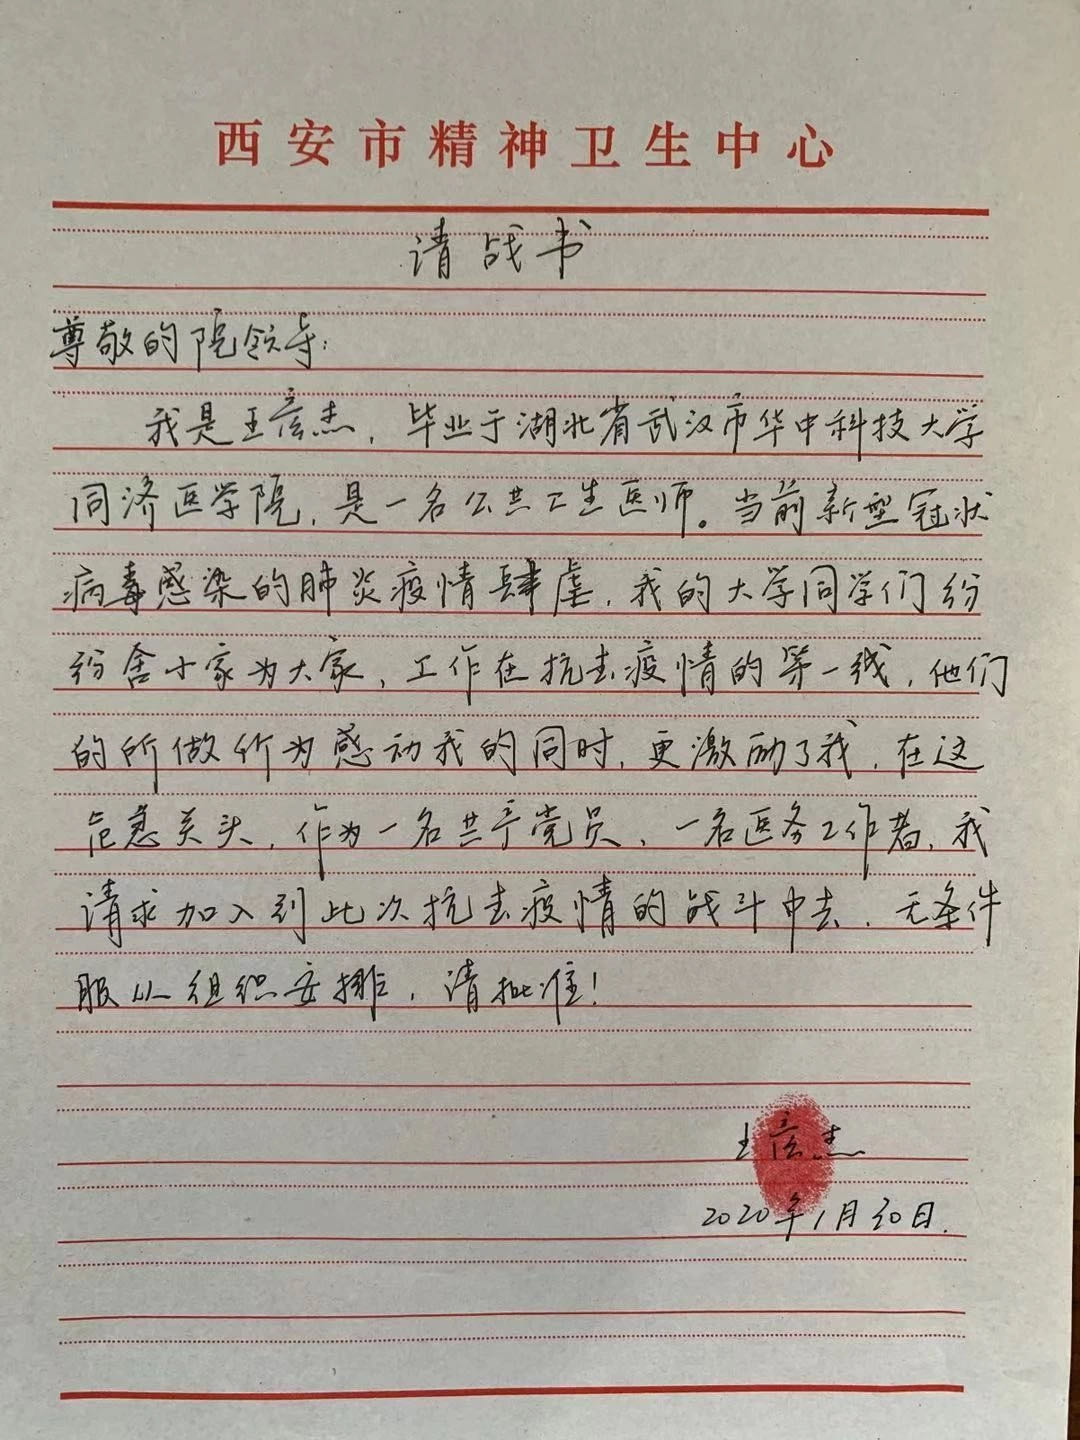 西安市精神卫生中心
请战书
尊敬的院领导：
我是王彦杰，毕业于湖北省武汉市华中科技大学
同济医学院，是一名公共卫生医师。当前新型冠状
病毒感染的肺炎疫情肆虐，我的大学同学们纷
纷舍小家为大家，工作在抗击疫情的第一线，他们
的所做所为感动我的同时，更激励了我，在这
危急关头，作为一名共产党员、一名医务工作者，我
请求加入到此次抗击疫情的战斗中去，无条件
服从组织安排，请批准！
王彦杰
2020年1月30日.